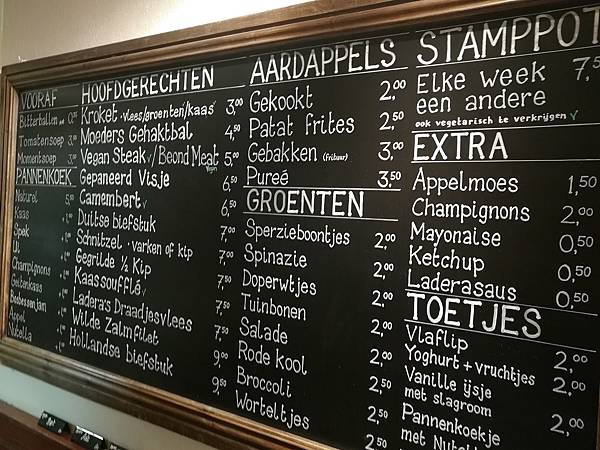 VOORAF
Bitterballen
Tomatensoep 3,00
Momentsoep 3,00
PANNENKOEK
Naturel 5,00
Kaas
Spek
Ui
Champignons
Geitenkaas
Bosbessenjam
Appel
Nutella
HOOFDGERECHTEN
Kroket - vlees/groenten/kaas 3,00
Moeders Gehaktbal 4,50
Vegan Steak √ / Beond Meat 5,00
Vegan
Gepaneerd Visje 6,50
Camembert √ 6,50
Duitse biefstuk 7,00
Schnitzel - varken of kip 7,00
Gegrilde ½ Kip 7,00
Kaassoufflé √ 7,50
Ladera's Draadjesvlees 7,50
Wilde Zalmfilet 9,00
Hollandse biefstuk 9,50
AARDAPPELS
Gekookt 2,00
Patat frites 2,50
Gebakken (frituur) 3,00
Pureé 3,50
GROENTEN
Sperzieboontjes 2,00
Spinazie 2,00
Doperwtjes 2,00
Tuinbonen 2,00
Salade 2,00
Rode kool 2,50
Broccoli 2,50
Worteltjes 2,50
STAMPPOT
Elke week 7,5
een andere
ook vegetarisch te verkrijgen √
EXTRA
Appelmoes 1,50
Champignons 2,00
Mayonaise 0,50
Ketchup 0,50
Laderasaus 0,50
TOETJES
Vlaflip 2,00
Yoghurt + vruchtjes 2,00
Vanille ijsje
met slagroom 2,00
Pannenkoekje
met Nutel